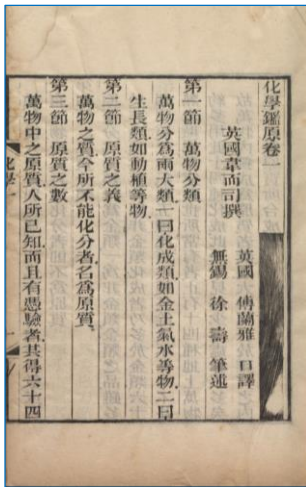 化學鑑原卷一
英國韋而司撰
英國 傅蘭雅 口譯
無錫 徐壽 筆述
第一節 萬物分類
萬物分爲兩大類一曰化成類如金土氣水等物二曰
生長類如動植等物
第二節 原質之義
萬物之質今所不能化分者名爲原質
第三節 原質之數
萬物中之原質人所已知而且有憑驗者其得六十四
化學一